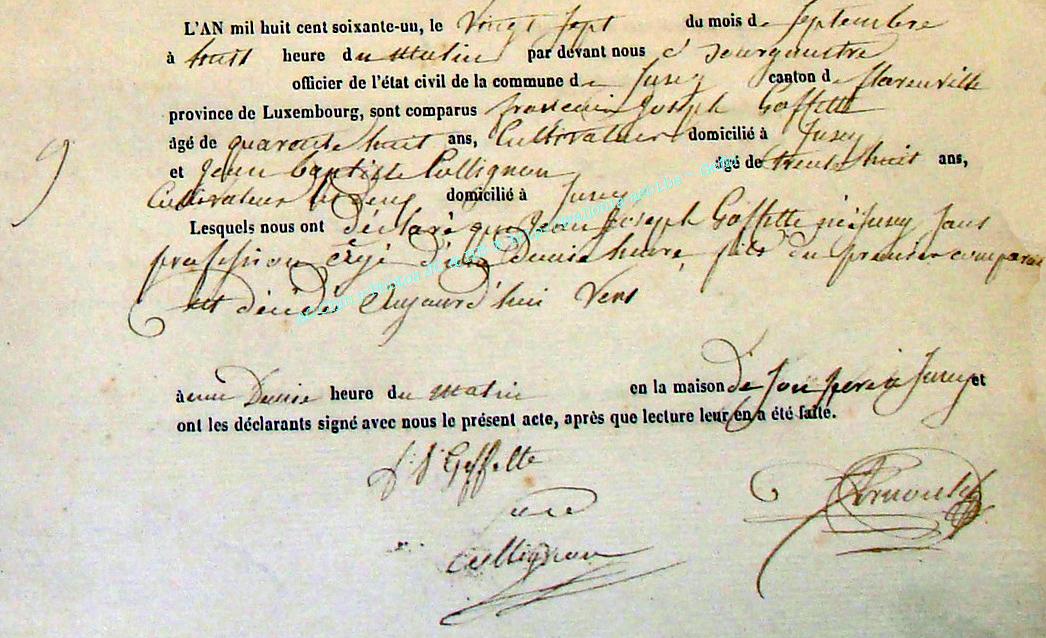 L'AN mil huit cent soixante-un, le Vingt Sept du mois de Septembre
à huit heure du Matin par devant nous Bourgmestre
officier de l'état civil de la commune de Jusey canton de
province de Luxembourg, sont comparus francois Joseph Goffette
âgé de quarante huit ans, Cultivateur domicilié à Jusey
9
et Jean baptiste Collignon âgé de trente huit ans,
Cultivateur domicilié à Jusey
Lesquels nous ont déclaré que Jean Joseph Goffette né à Jusey Sans
profession agé d'une Demie heure, fils du premier comparant
est décédé Aujourd'hui Vers
à une Demie heure du Matin en la maison de Son père à Jusey et
ont les déclarants signé avec nous le présent acte, après que lecture leur en a été faite.
f. J. Goffette
collignon